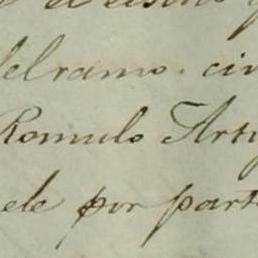 del ramo. civ
Romulo Art
ele por part